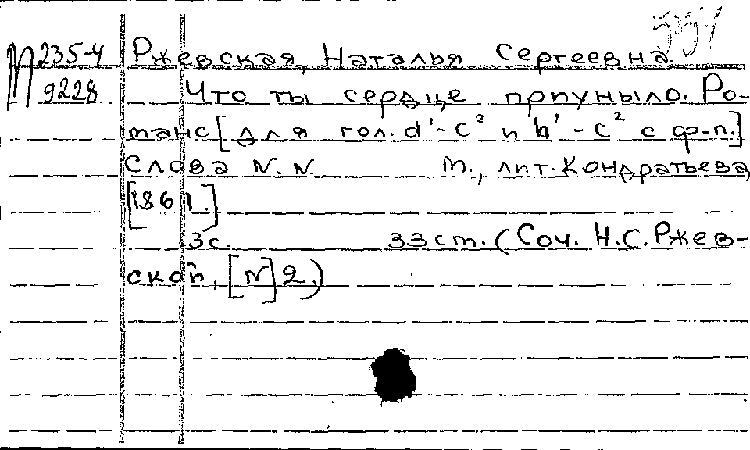 М 235-4 Ржевская, Наталья Сергеевна
9228 Что ты сердце приуныло. Ро-
манс [для гол. d¹-c² и h¹-c² с ф-п.]
Слова N. N. М., лит. Кондратьева,
[1861.]
3с. 33см. (Соч. Н.С. Ржев-
ской, [N] 2.)